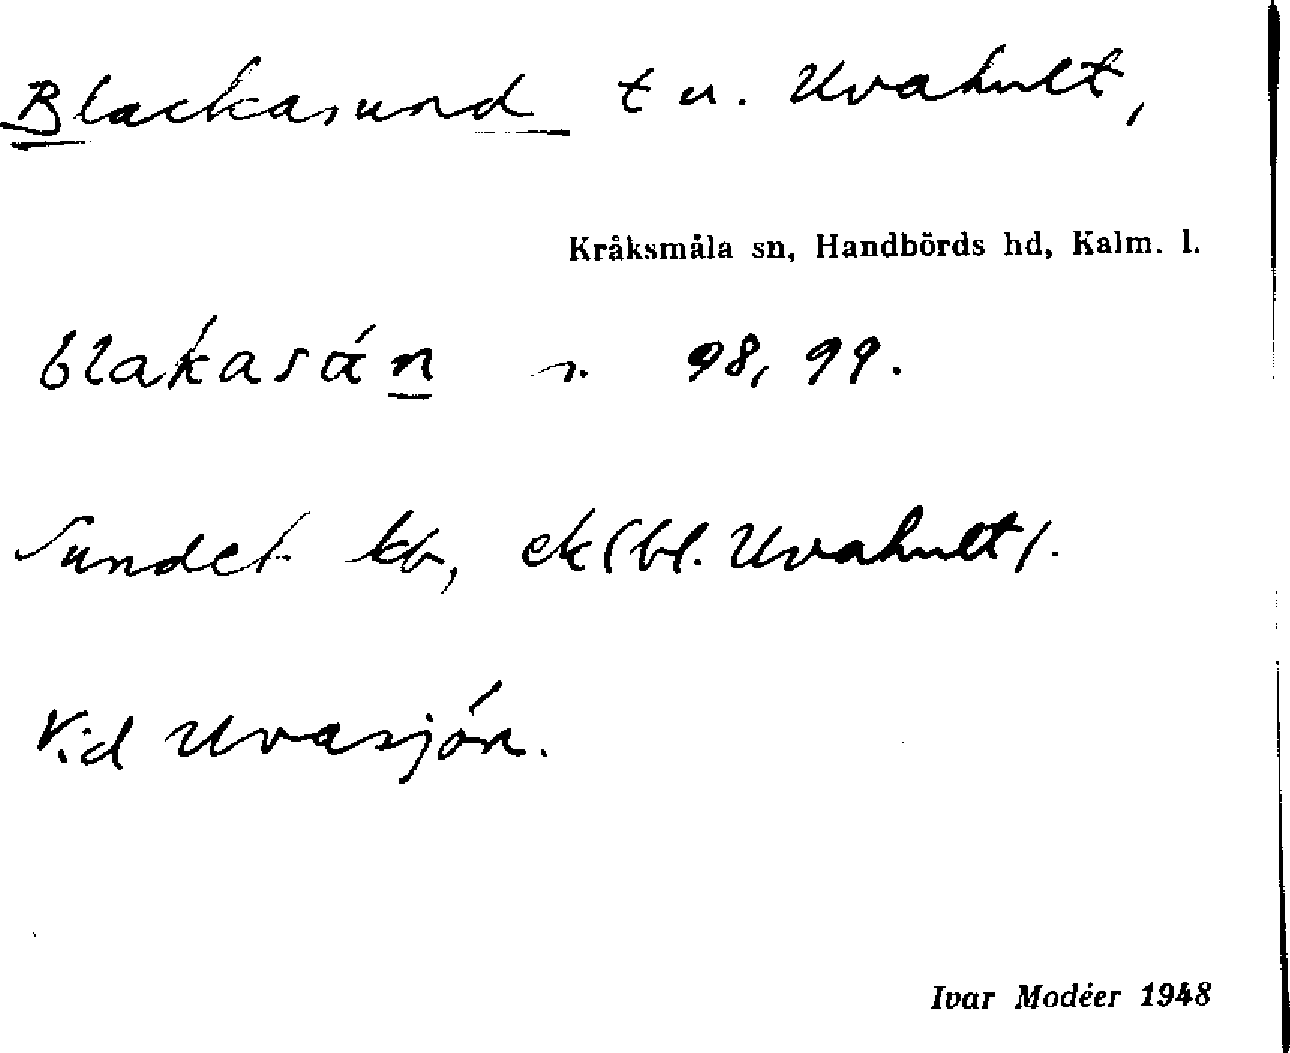 Blackasund t u. Uvahult,
Kråksmåla sn, Handbörds hd, Kalm. l.
blakasán n. 98, 99.
Sundet kb, ek (bl. Uvahult).
Vid Uvasjön.
Ivar Modéer 1948